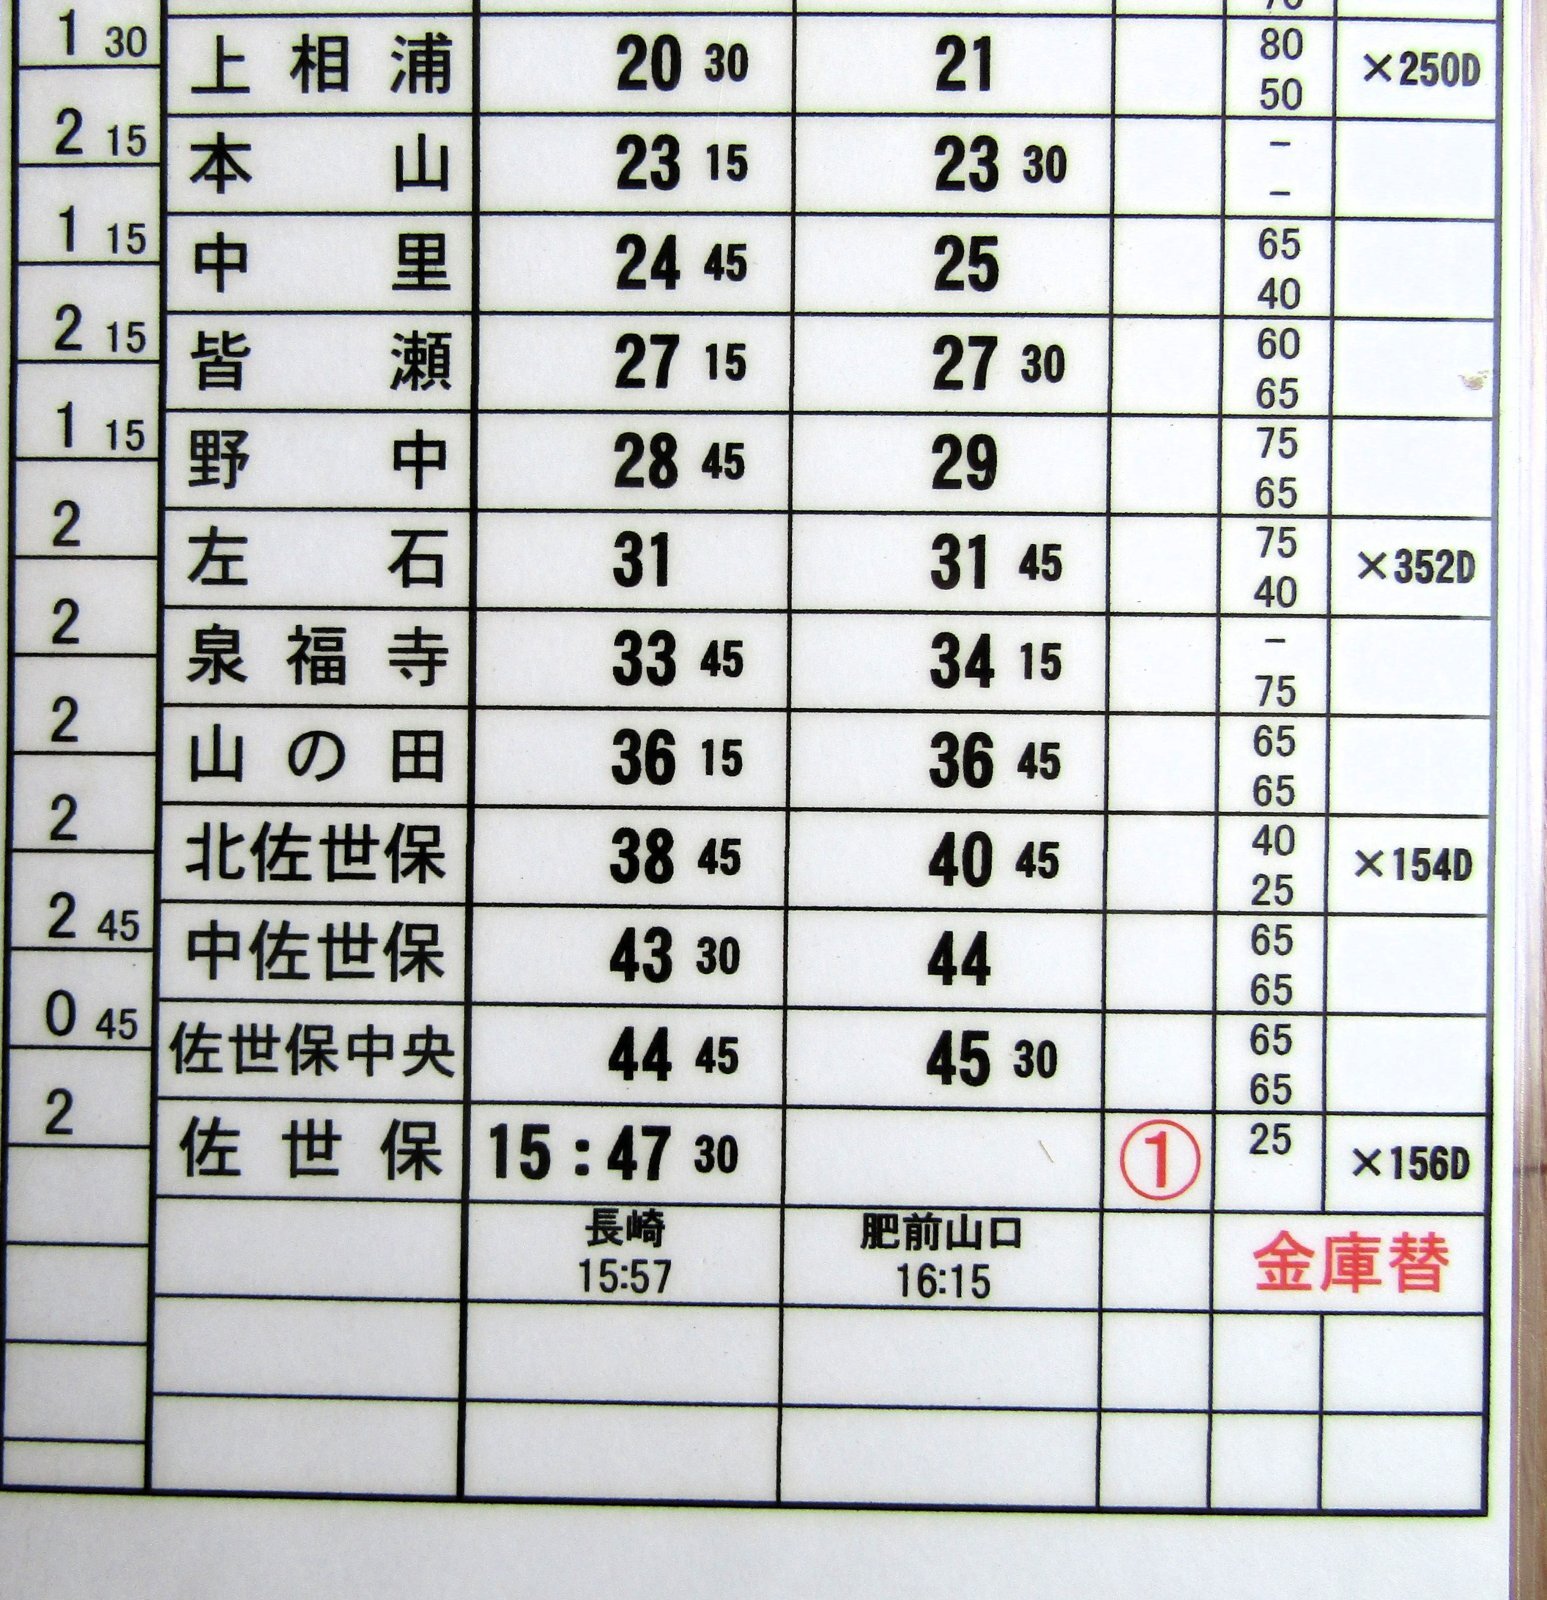 1 30
上相浦 20 30 21 80 50 ×250D
2 15
本山 23 15 23 30 - -
1 15
中里 24 45 25 65 40
2 15
皆瀬 27 15 27 30 60 65
1 15
野中 28 45 29 75 65
2
左石 31 31 45 75 40 ×352D
2
泉福寺 33 45 34 15 - 75
2
山の田 36 15 36 45 65 65
2
北佐世保 38 45 40 45 40 25 ×154D
2 45
中佐世保 43 30 44 65 65
0 45
佐世保中央 44 45 45 30 65 65
2
佐世保 15:47 30 ① 25 ×156D
長崎 肥前山口 金庫替
15:57 16:15